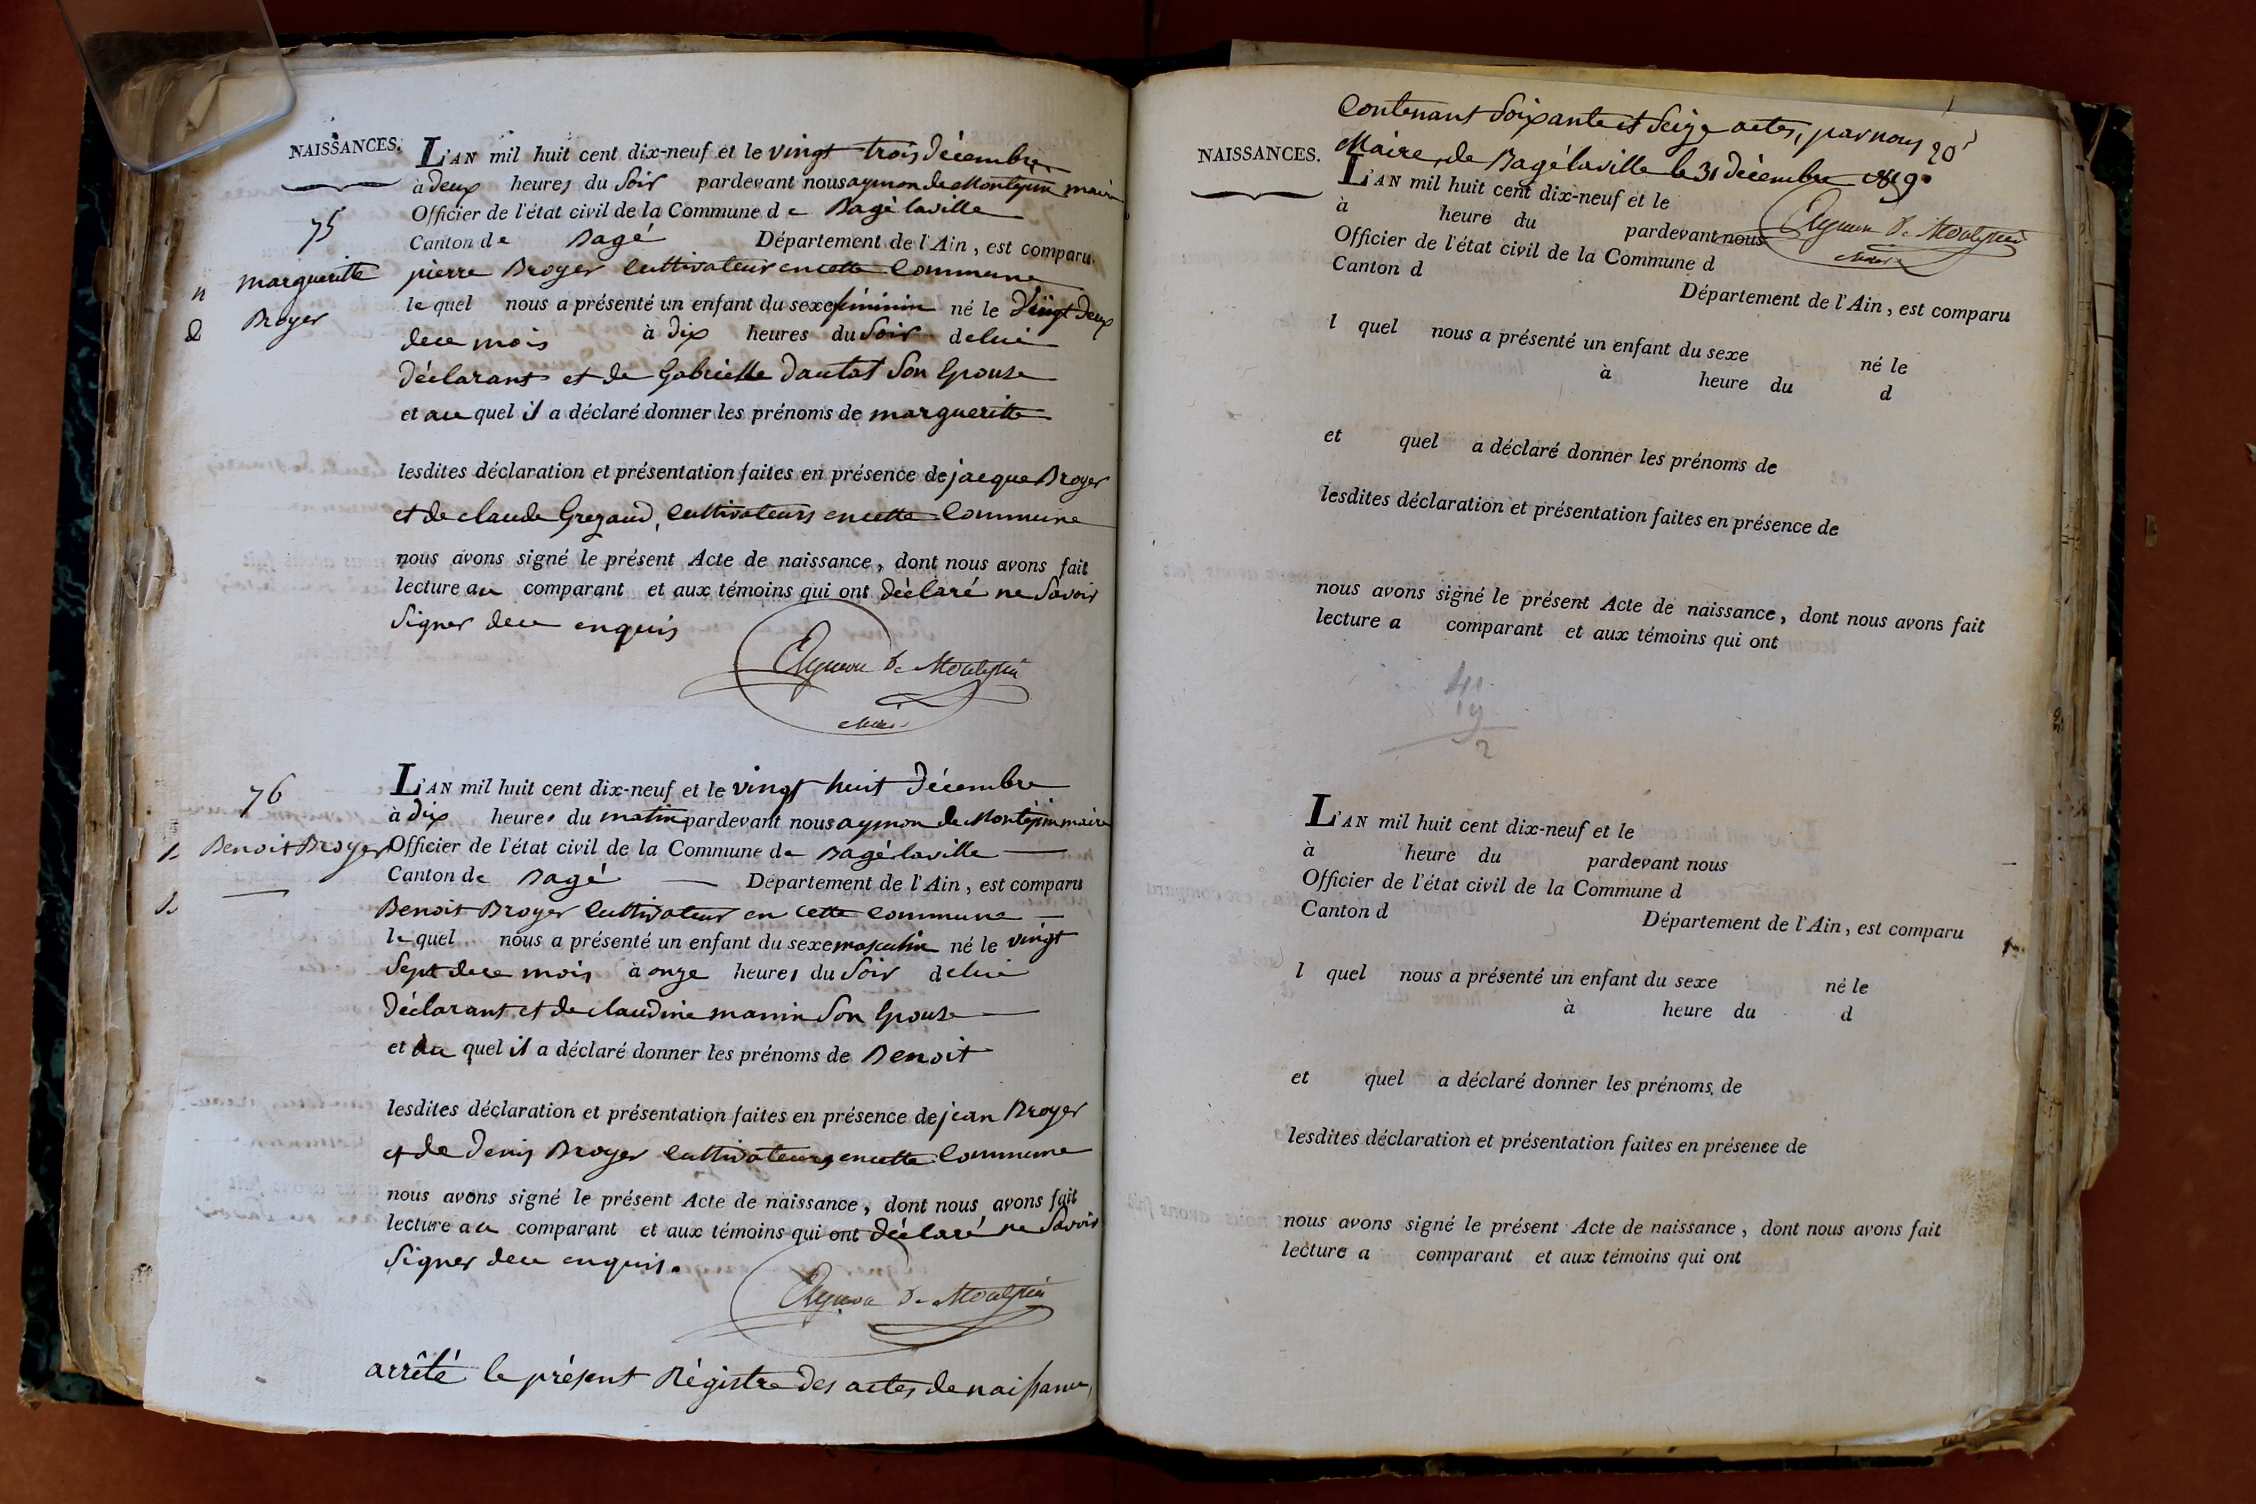 NAISSANCES.
L'AN mil huit cent dix-neuf et le vingt trois décembre
à deux heures du Soir pardevant nous aymon de Montépin maire
Officier de l'état civil de la Commune de Bagé laville
Canton de Bagé Département de l'Ain, est comparu
75
margueritte
Broyer
pierre Broyer Cultivateur en cette Commune
le quel nous a présenté un enfant du sexe féminin né le Vingt deux
de ce mois à dix heures du Soir de lui
déclarant et de Gabrielle dautat Son Epouse
et au quel il a déclaré donner les prénoms de margueritte
lesdites déclaration et présentation faites en présence de jacque Broyer
et de claude Gregaud, Cultivateurs en cette Commune
nous avons signé le présent Acte de naissance, dont nous avons fait
lecture au comparant et aux témoins qui ont déclaré ne Savoir
Signer de ce enquis
Aymon de Montépin
Maire
76
Benoit Broyer
L'AN mil huit cent dix-neuf et le vingt huit décembre
à dix heures du matin pardevant nous aymon de Montépin maire
Officier de l'état civil de la Commune de Bagé laville
Canton de Bagé Département de l'Ain, est comparu
Benoit Broyer Cultivateur en cette Commune
le quel nous a présenté un enfant du sexe masculin né le vingt
Sept de ce mois à onze heures du Soir de lui
déclarant et de claudine manin Son Epouse
et au quel il a déclaré donner les prénoms de Benoit
lesdites déclaration et présentation faites en présence de jean Broyer
et de denis Broyer Cultivateurs en cette Commune
nous avons signé le présent Acte de naissance, dont nous avons fait
lecture au comparant et aux témoins qui ont déclaré ne Savoir
Signer de ce enquis.
Aymon de Montépin
arrêté le présent Régistre des actes de naissance,
Contenant Soixante et Seize actes, par nous
Maire de Bagé laville le 31 décembre 1819.
20
Aymon de Montépin
Maire
NAISSANCES.
L'AN mil huit cent dix-neuf et le
à heure du pardevant nous
Officier de l'état civil de la Commune d
Canton d
Département de l'Ain, est comparu
l quel nous a présenté un enfant du sexe né le
à heure du d
et quel a déclaré donner les prénoms de
lesdites déclaration et présentation faites en présence de
nous avons signé le présent Acte de naissance, dont nous avons fait
lecture a comparant et aux témoins qui ont
L'AN mil huit cent dix-neuf et le
à heure du pardevant nous
Officier de l'état civil de la Commune d
Canton d
Département de l'Ain, est comparu
l quel nous a présenté un enfant du sexe né le
à heure du d
et quel a déclaré donner les prénoms de
lesdites déclaration et présentation faites en présence de
nous avons signé le présent Acte de naissance, dont nous avons fait
lecture a comparant et aux témoins qui ont